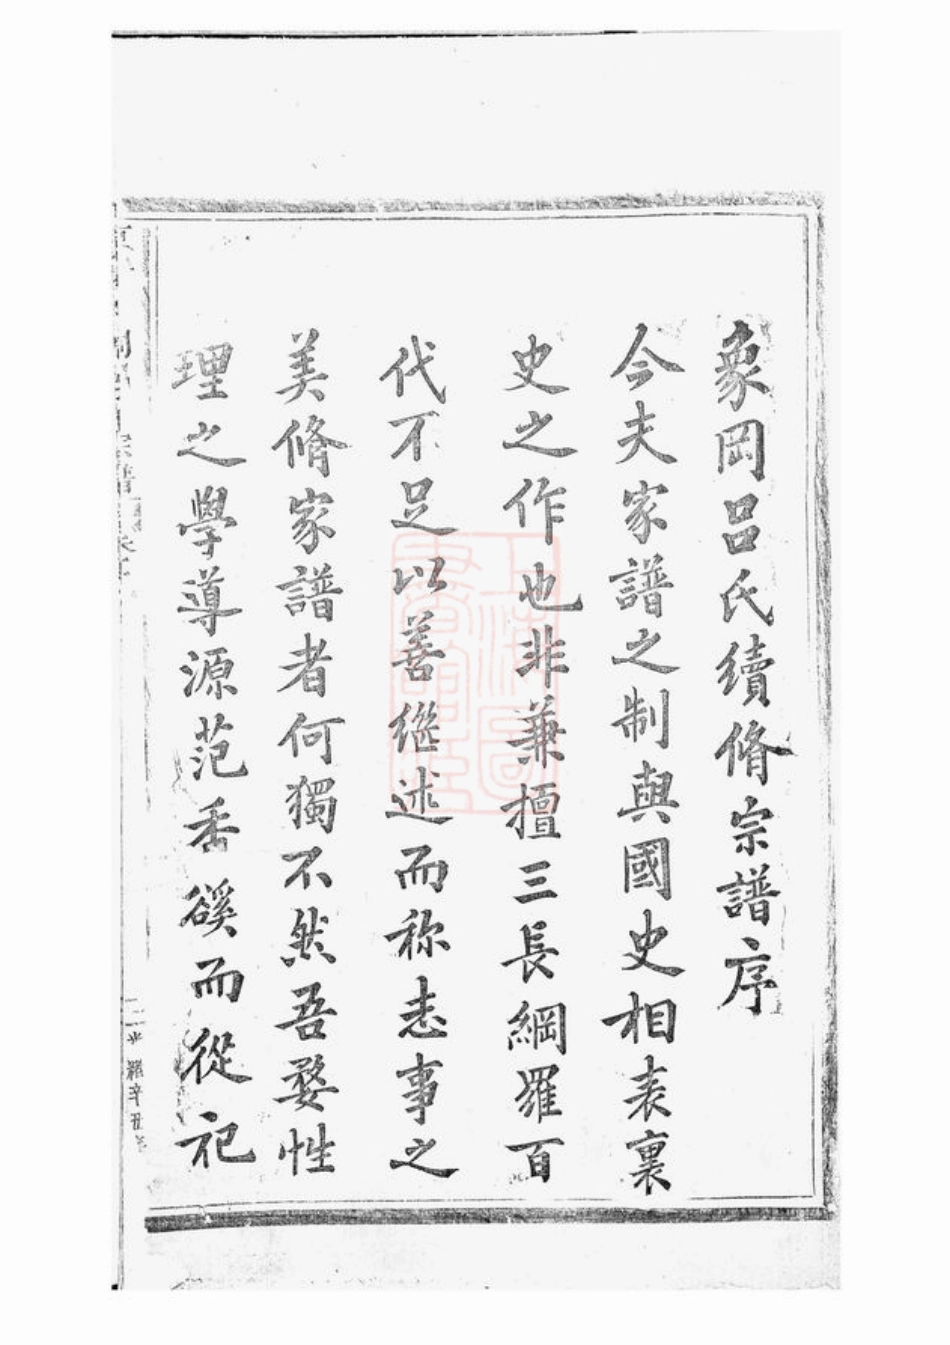 象岡呂氏續脩宗譜序
今夫家譜之制與國史相表裏
史之作也非兼擅三長網羅百
代不足以善繼述而称志事之
美脩家譜者何獨不然吾婺性
理之學導源范香谿而從祀
宗譜
光緒辛丑年